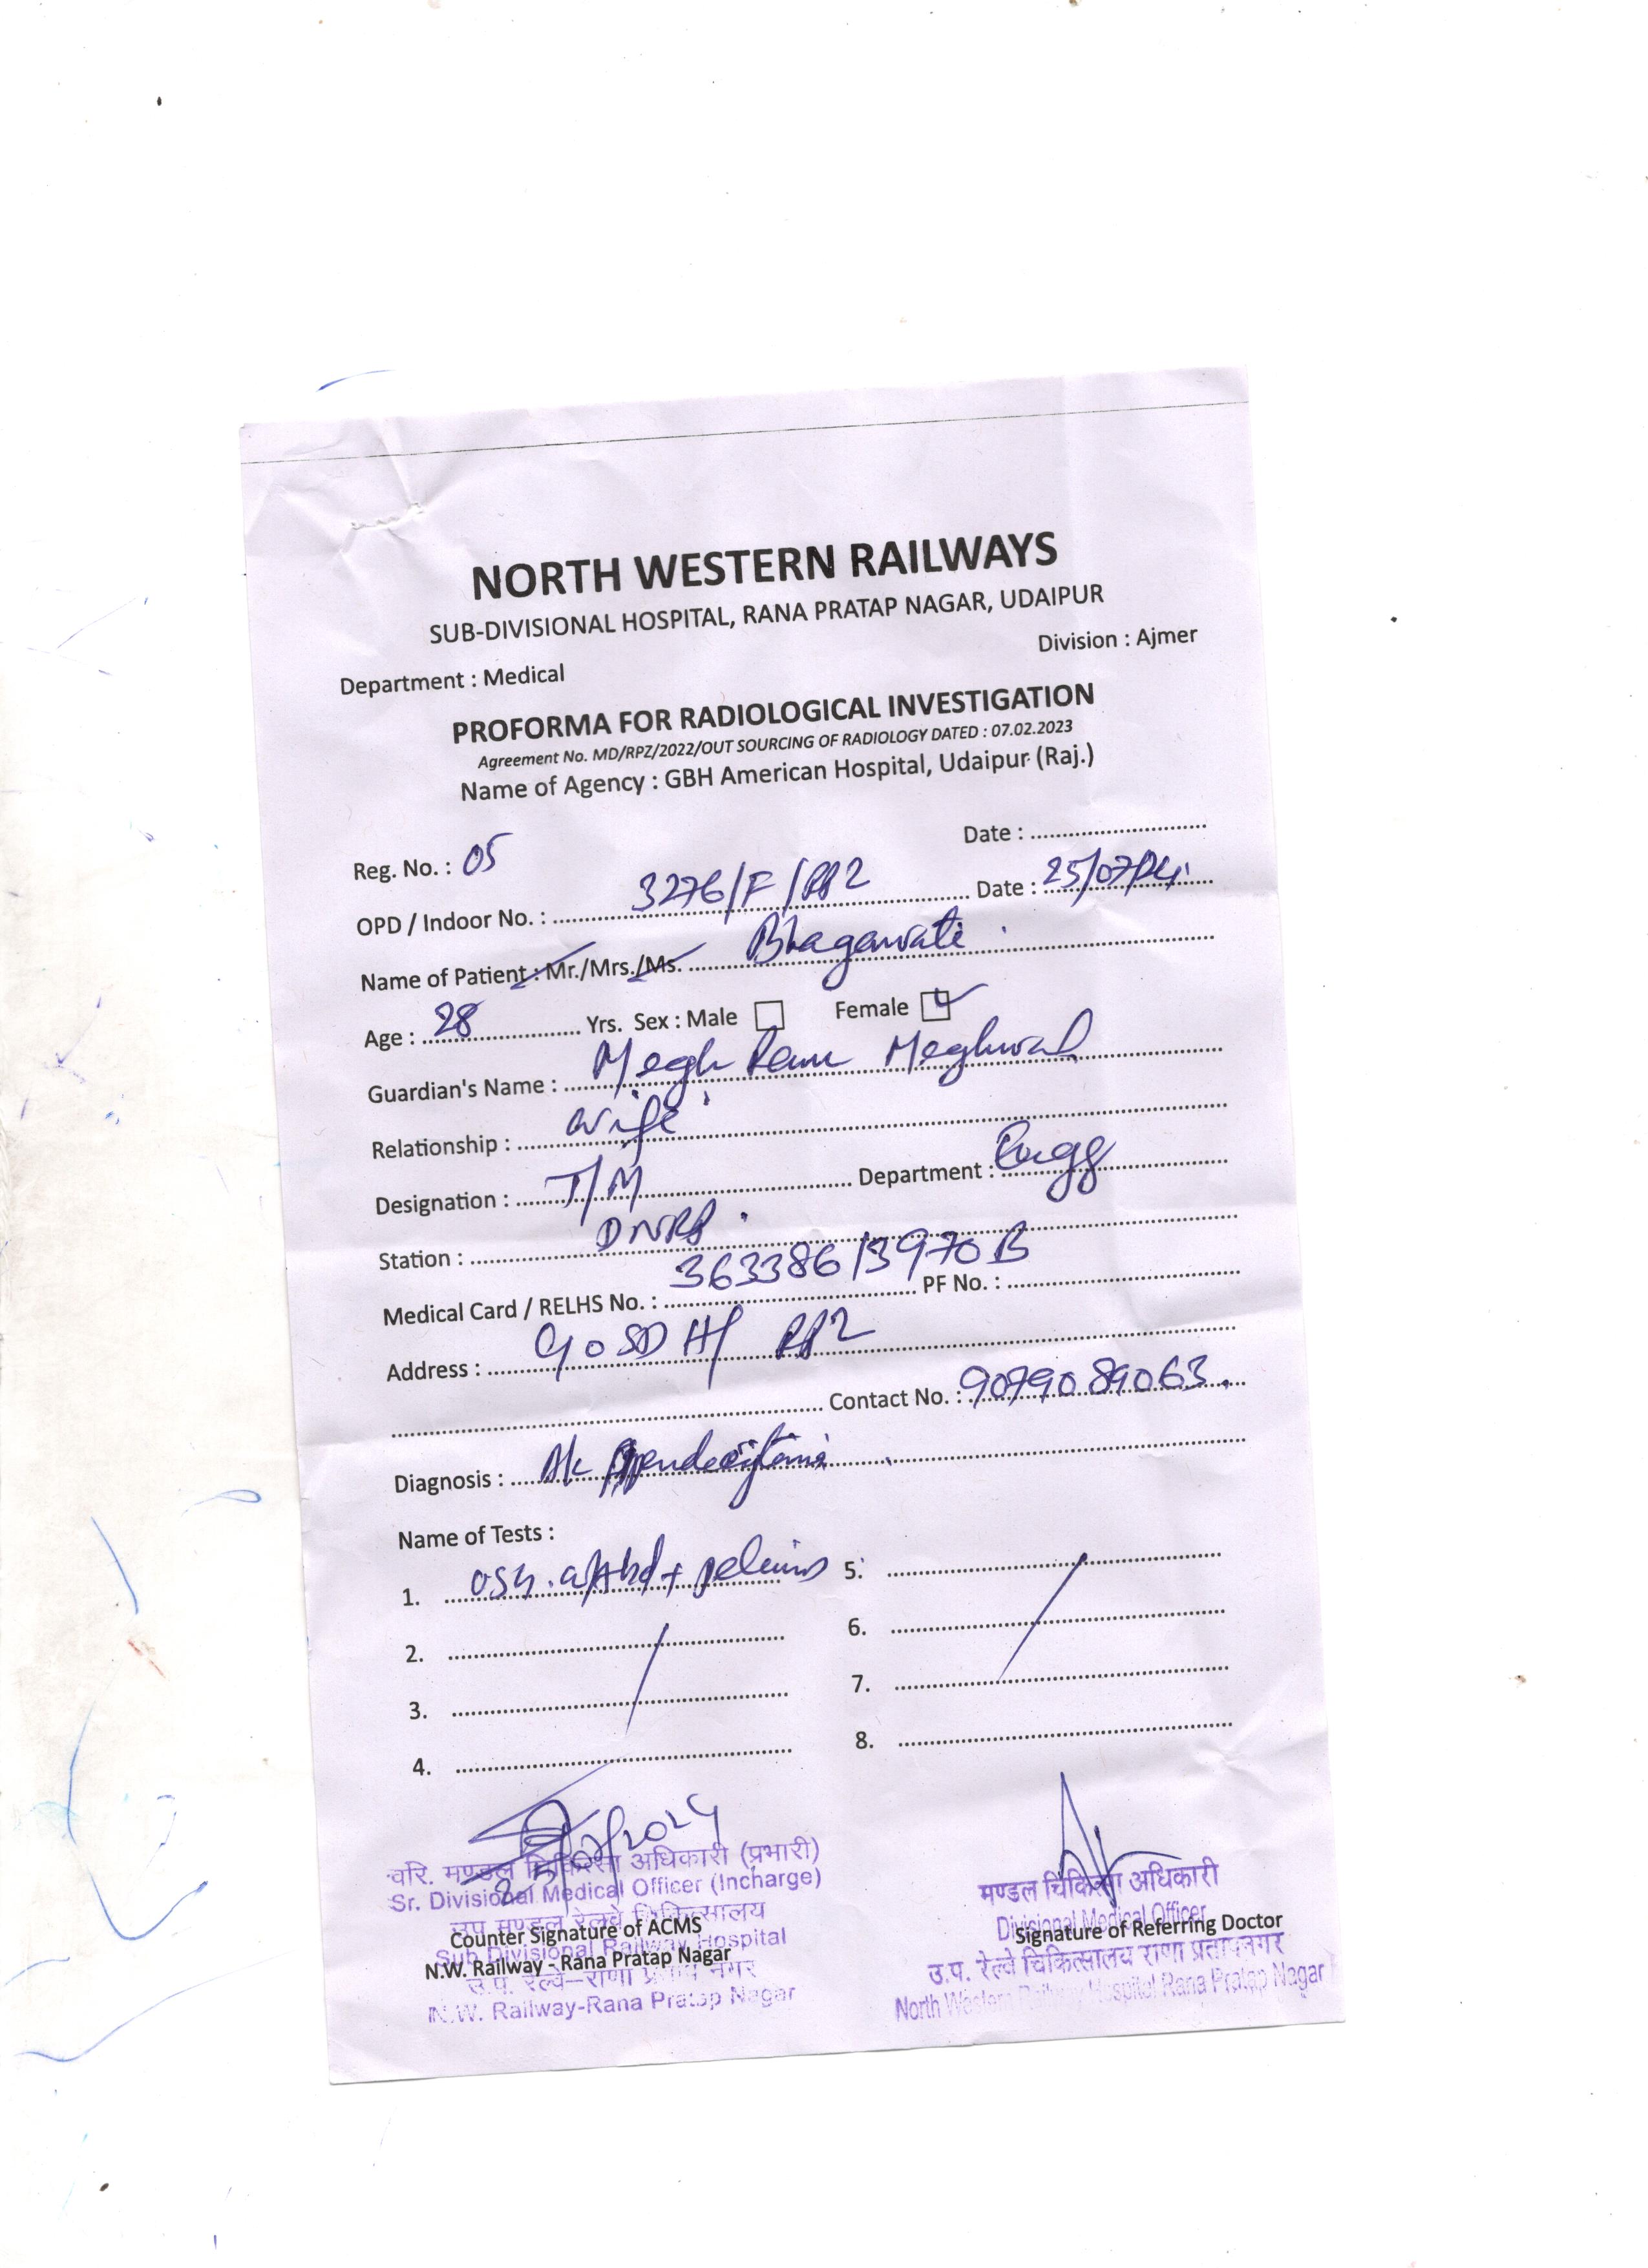 NORTH WESTERN RAILWAYS
SUB-DIVISIONAL HOSPITAL, RANA PRATAP NAGAR, UDAIPUR
Department : Medical Division : Ajmer
PROFORMA FOR RADIOLOGICAL INVESTIGATION
Agreement No. MD/RPZ/2022/OUT SOURCING OF RADIOLOGY DATED : 07.02.2023
Name of Agency : GBH American Hospital, Udaipur (Raj.)
Date :
Reg. No. : 05
OPD / Indoor No. : 3276/F/ Date : 25/07/24
Name of Patient : Mr./Mrs./Ms. Bhagawati
Age : 28 Yrs. Sex : Male Female
Guardian's Name : Megh Ram Meghwal
Relationship : wife
Designation : T/M Department : Engg
Station :
Medical Card / RELHS No. : 363386/3970B PF No. :
Address :
Contact No. : 9079089063.
Diagnosis :
Name of Tests :
1. 5.
2. 6.
3. 7.
4. 8.
वरि. मण्डल चिकित्सा अधिकारी (प्रभारी)
Sr. Divisional Medical Officer (Incharge)
उप मण्डल रेलवे चिकित्सालय
Counter Signature of ACMS
Sub Divisional Railway Hospital
N.W. Railway - Rana Pratap Nagar
उ.प. रेल्वे-राणा प्रताप नगर
N.W. Railway-Rana Pratap Nagar
मण्डल चिकित्सा अधिकारी
Divisional Medical Officer
Signature of Referring Doctor
उ.प. रेल्वे चिकित्सालय राणा प्रतापनगर
North Western Railway Hospital Rana Pratap Nagar